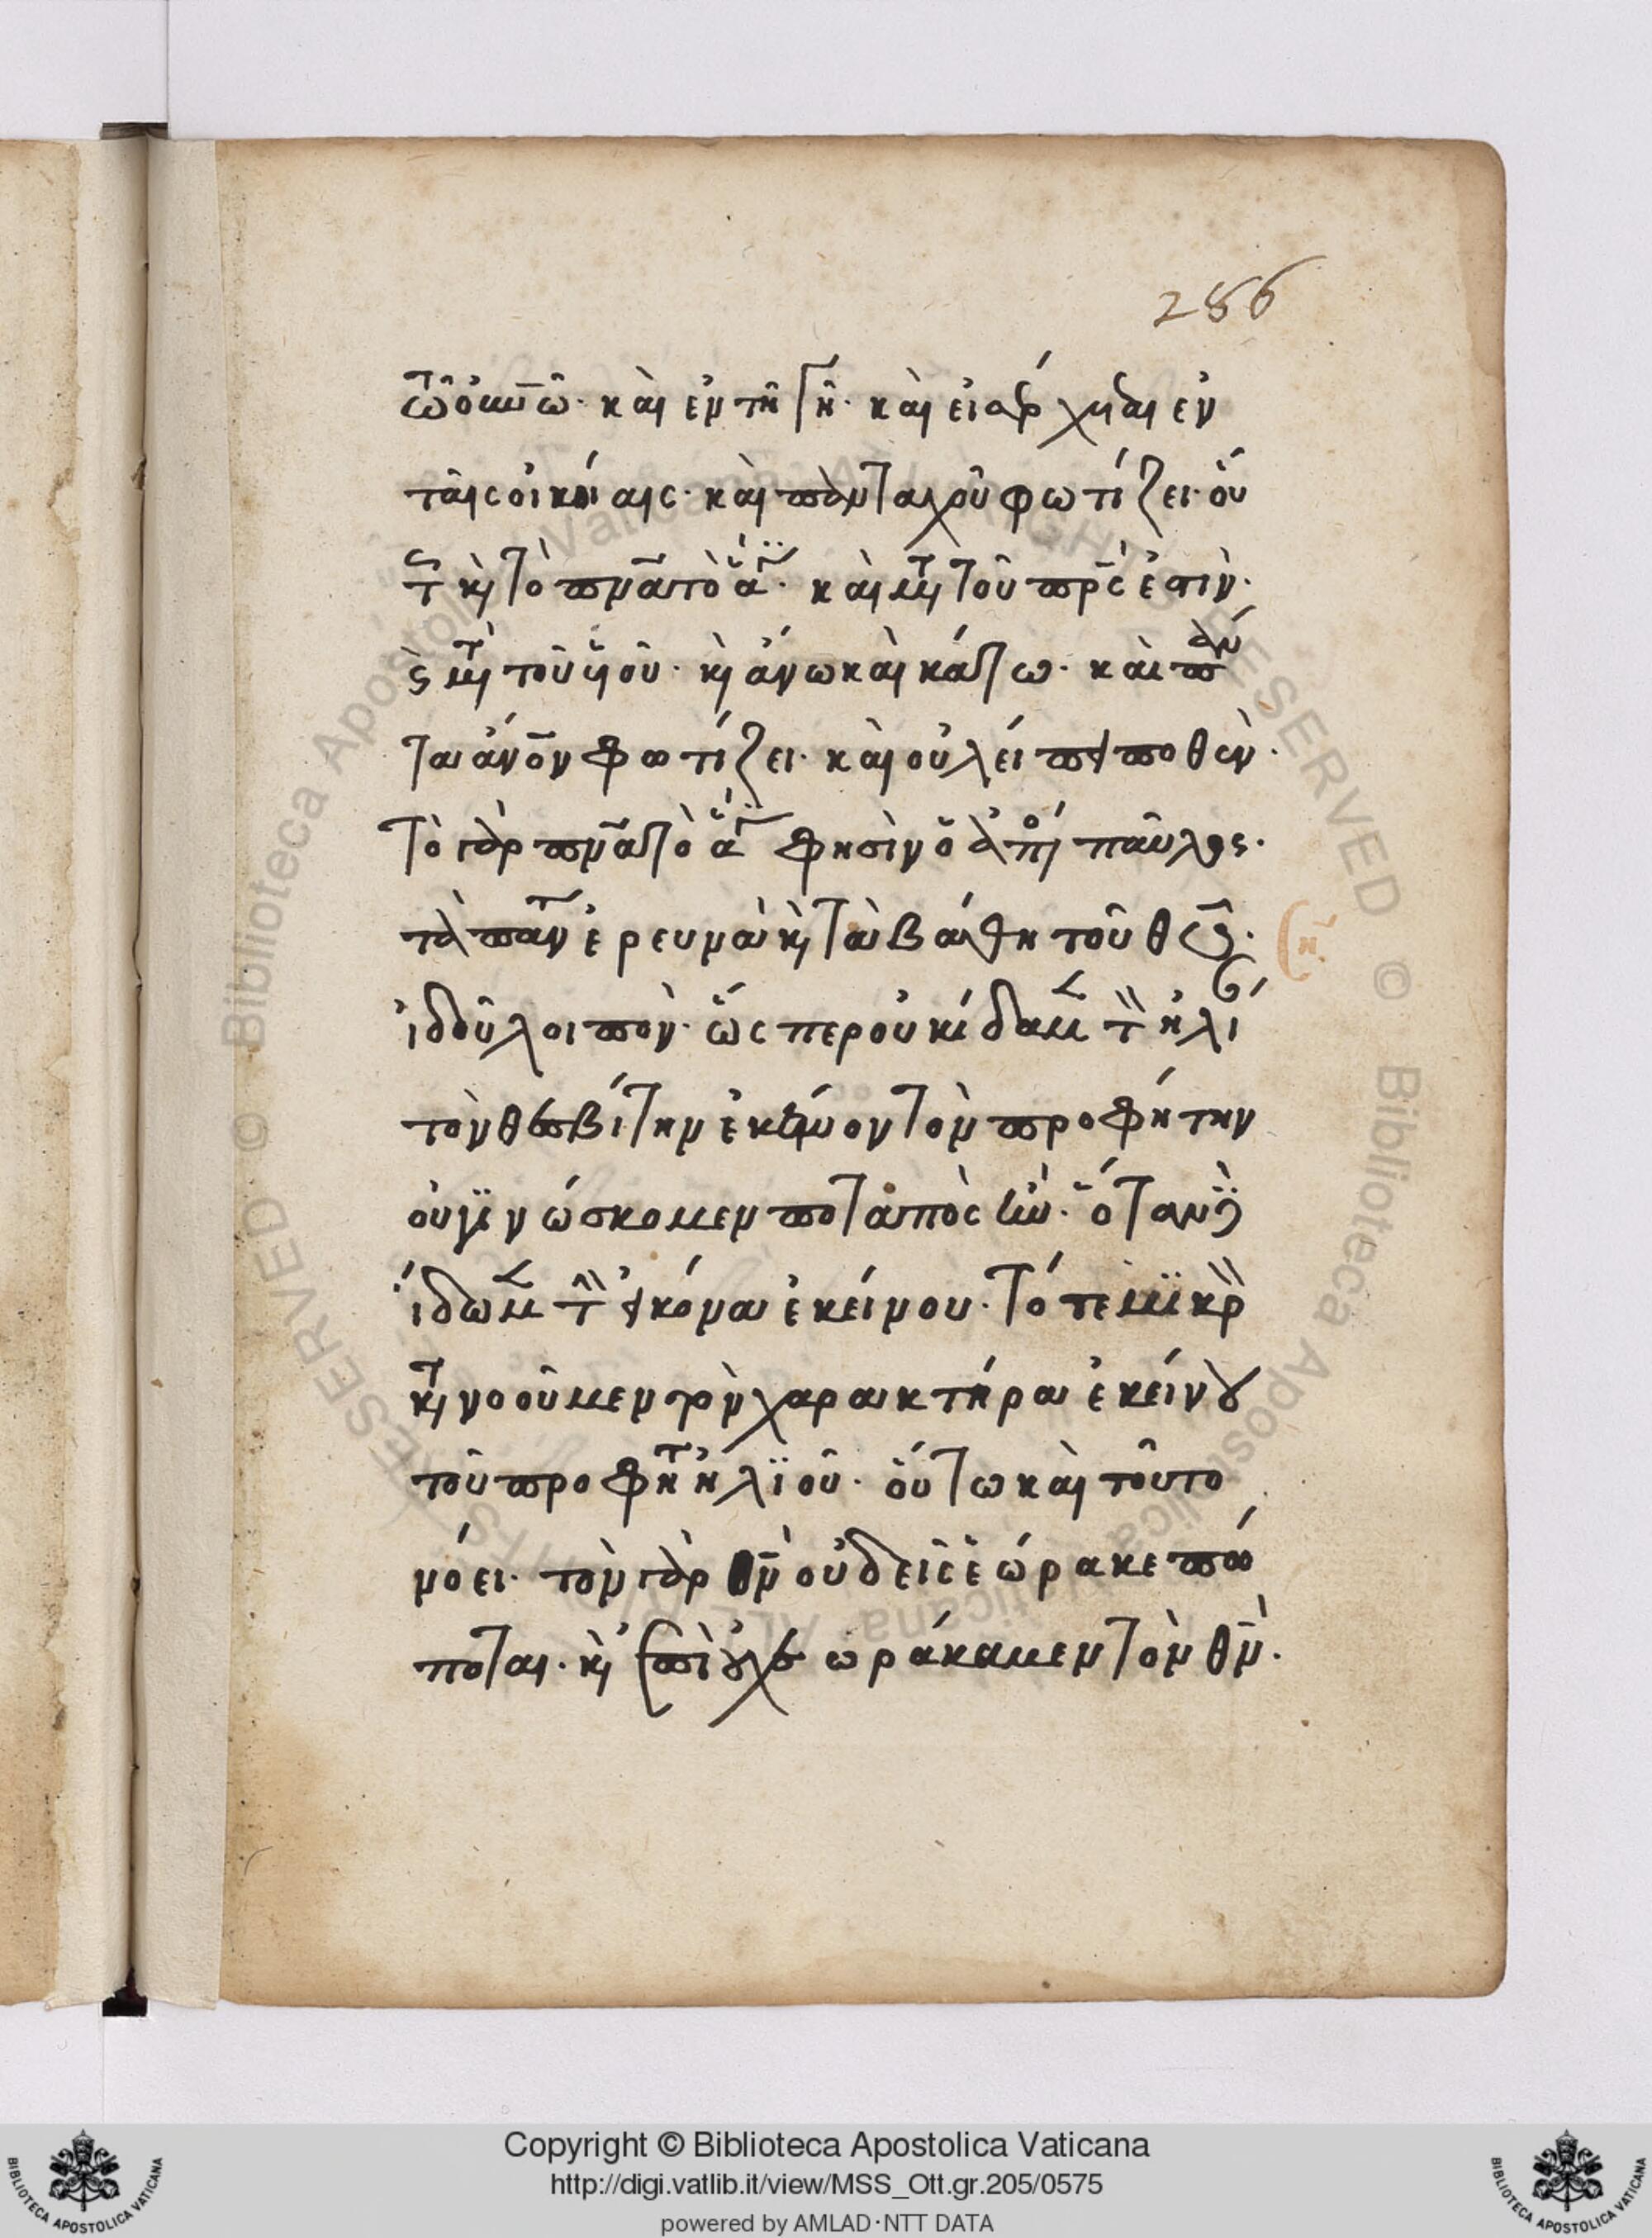 286
τῶ οὐνῶ· καὶ ἐν τῆ γῆ· καὶ εἰσέρχεται ἐν
ταῖς οἰκίαις· καὶ πανταχοῦ φωτίζει· οὕ
τως κὴ τὸ πνᾶ τὸ ἅγιον· καὶ μετὰ τοῦ πρς ἐστὶν·
καὶ μετὰ τοῦ υἱοῦ· κὴ ἄνω καὶ κάτω· καὶ πάν
τα ἄνον φωτίζει· καὶ οὐ λείπει ποθέν·
τὸ γὰρ πνᾶ τὸ ἅγιον φησὶν ὁ ἀπόστολος παῦλος·
τὰ πάντα ἐρευνᾶ κὴ τὰ βάθη τοῦ θῦ·
ἰδοῦ λοιπὸν· ὥσπερ οὐκ οἴδαμεν τὸν ἠλίαν
τὸν θεσβίτην ἐκεῖνον τὸν προφήτην
οὐ γινώσκομεν ποταπὸς ἦν· ὅταν
ἴδωμεν τὴν εἰκόνα ἐκείνου· τότε μικρὸν
κατανοοῦμεν τὸν χαρακτήρα ἐκείνου
τοῦ προφήτου ἠλϊοῦ· οὕτω καὶ τοῦτο
νόει· τὸν γὰρ θν οὐδεὶς ἑώρακε πώ
ποται· κὴ ἐπὶ οὐχ ἑωράκαμεν τὸν θν·
Copyright © Biblioteca Apostolica Vaticana
http://digi.vatlib.it/view/MSS_Ott.gr.205/0575
powered by AMLAD·NTT DATA